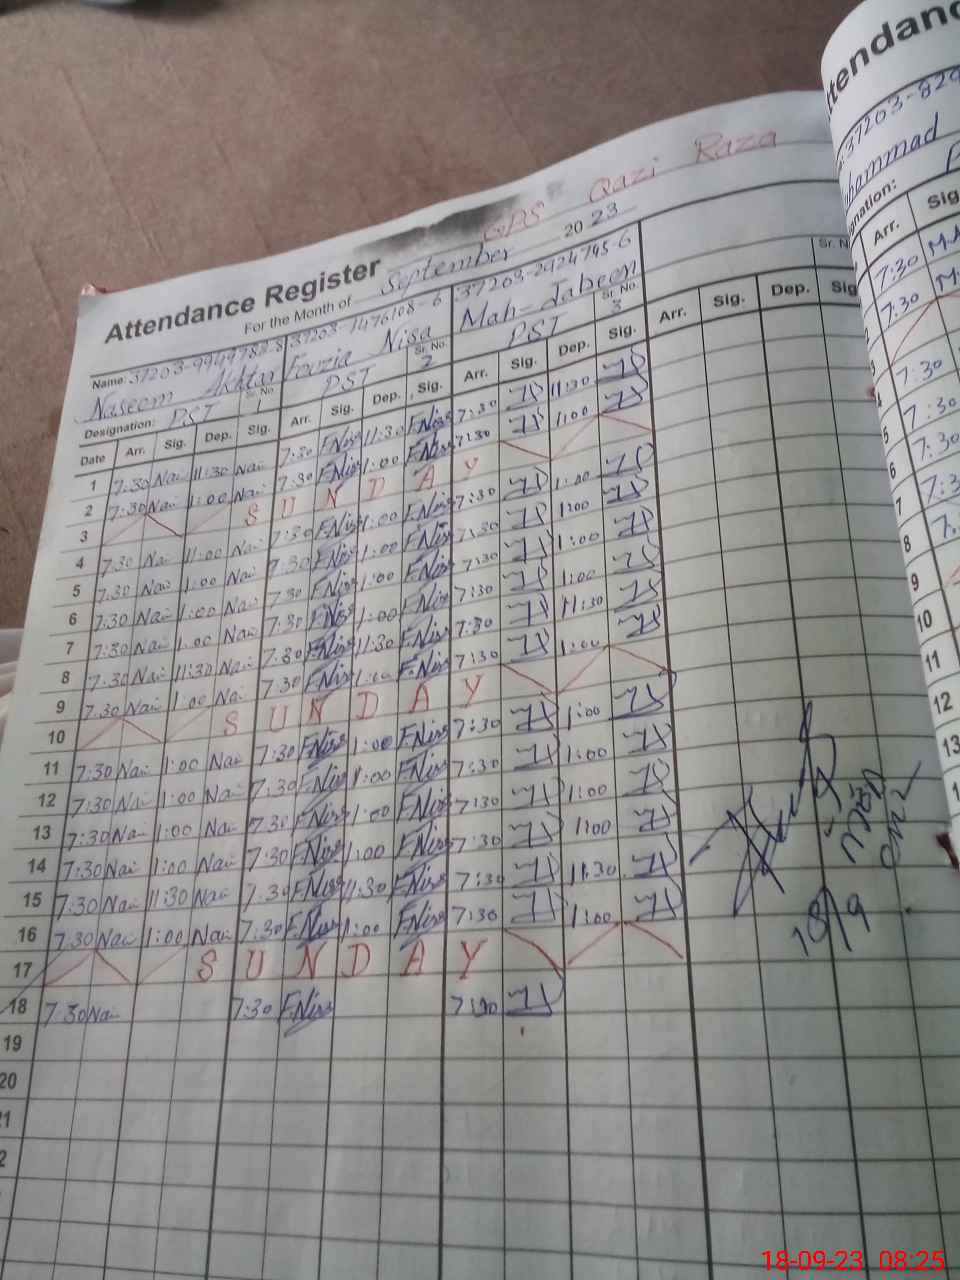 GPS Qazi Raza
Attendance Register
For the Month of September 2023
Name: 37203-9949788-8 37203-1476108-6 37203-2924745-6
Naseem Akhtar Fouzia Nisa Mah-Jabeen
Designation: PST Sr. No. 1 PST Sr. No. 2 PST Sr. No. 3 Sr. N
Date Arr. Sig. Dep. Sig. Arr. Sig. Dep. Sig. Arr. Sig. Dep. Sig. Arr. Sig. Dep. Sig
1 7:30 Nai 11:30 Nai 7:30 F.Nisa 11:30 F.Nisa 7:30 11:30
2 7:30 Nai 1:00 Nai 7:30 F.Nisa 1:00 F.Nisa 7:30 1:00
3 S U N D A Y
4 7:30 Nai 11:00 Nai 7:30 F.Nisa 1:00 F.Nisa 7:30 1:00
5 7:30 Nai 1:00 Nai 7:30 F.Nisa 1:00 F.Nisa 7:30 1:00
6 7:30 Nai 1:00 Nai 7:30 F.Nisa 1:00 F.Nisa 7:30 1:00
7 7:30 Nai 1:00 Nai 7:30 F.Nisa 1:00 F.Nisa 7:30 1:00
8 7:30 Nai 11:30 Nai 7:30 F.Nisa 11:30 F.Nisa 7:30 11:30
9 7:30 Nai 1:00 Nai 7:30 F.Nisa 1:00 F.Nisa 7:30 1:00
10 S U N D A Y
11 7:30 Nai 1:00 Nai 7:30 F.Nisa 1:00 F.Nisa 7:30 1:00
12 7:30 Nai 1:00 Nai 7:30 F.Nisa 1:00 F.Nisa 7:30 1:00
13 7:30 Nai 1:00 Nai 7:30 F.Nisa 1:00 F.Nisa 7:30 1:00
14 7:30 Nai 1:00 Nai 7:30 F.Nisa 1:00 F.Nisa 7:30 1:00
15 7:30 Nai 11:30 Nai 7:30 F.Nisa 11:30 F.Nisa 7:30 11:30
16 7:30 Nai 1:00 Nai 7:30 F.Nisa 1:00 F.Nisa 7:30 1:00
17 S U N D A Y
18 7:30 Nai 7:30 F.Nisa 7:30
19
20
18/9
ttendanc
37203-829
hammad
nation:
Arr. Sig
7:30 M.A
7:30 M
7:30
5 7:30
6 7:30
7 7:3
8 7
9
10
11
12
13
18-09-23 08:25